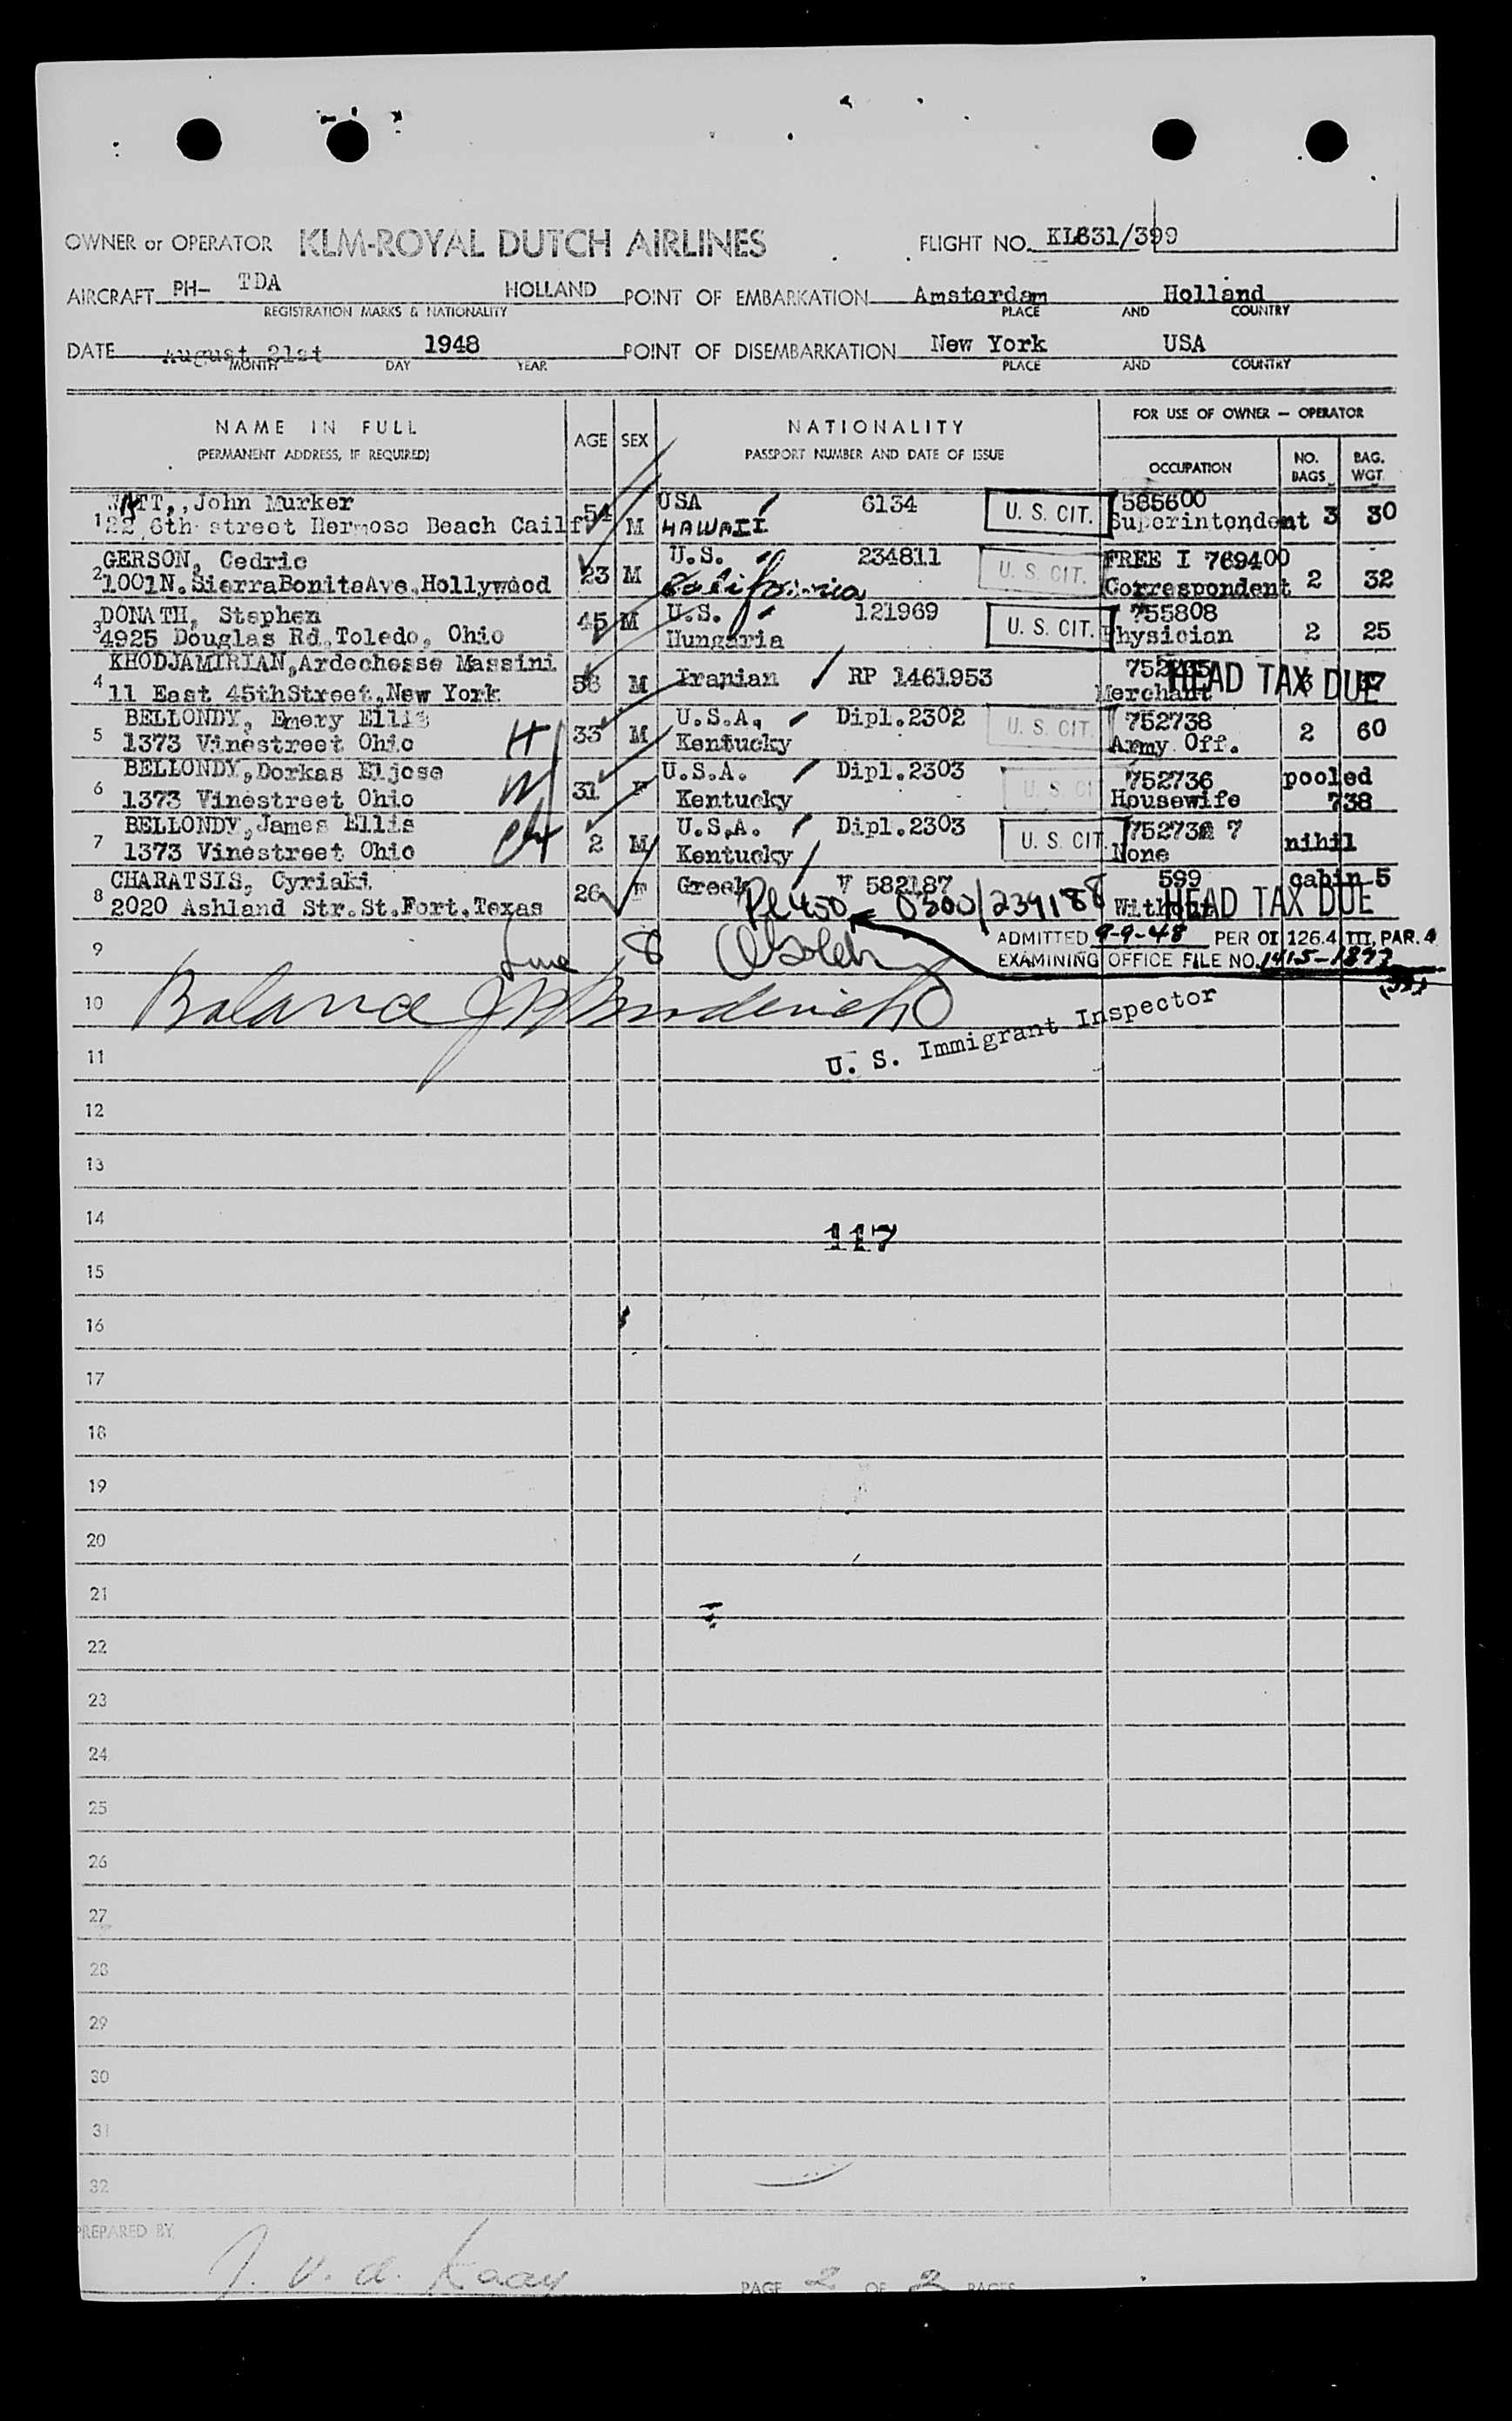 OWNER or OPERATOR KLM-ROYAL DUTCH AIRLINES FLIGHT NO. KL631/399
AIRCRAFT PH- TDA HOLLAND POINT OF EMBARKATION Amsterdam Holland
REGISTRATION MARKS & NATIONALITY PLACE AND COUNTRY
DATE August 21st 1948 POINT OF DISEMBARKATION New York USA
MONTH DAY YEAR PLACE AND COUNTRY
NAME IN FULL AGE SEX NATIONALITY FOR USE OF OWNER — OPERATOR
(PERMANENT ADDRESS, IF REQUIRED) PASSPORT NUMBER AND DATE OF ISSUE OCCUPATION NO. BAGS BAG. WGT.
1 WATT,,John Murker 54 M USA 6134 U. S. CIT. 585600
22 6th street Hermosa Beach Cailf HAWAII Superintendent 3 30
2 GERSON, Cedric 23 M U.S. 234811 U. S. CIT. FREE I 769400
1001N.SierraBonitaAve.Hollywood California Correspondent 2 32
3 DONATH, Stephen 45 M U.S. 121969 U. S. CIT. 755808
4925 Douglas Rd.Toledo, Ohio Hungaria Physician 2 25
4 KHODJAMIRIAN,Ardochesse Massini M Iranian RP 1461953 HEAD TAX DUE
11 East 45thStreet,New York Merchant
5 BELLONDY, Emery Ellis H 33 M U.S.A. Dipl.2302 U. S. CIT. 752738
1373 Vinestreet Ohio Kentucky Army Off. 2 60
6 BELLONDY,Dorkas Eljose W 31 F U.S.A. Dipl.2303 U. S. CI 752736 pooled
1373 Vinestreet Ohio Kentucky Housewife 738
7 BELLONDY,James Ellis Ch 2 M U.S.A. Dipl.2303 U. S. CIT. 75273 7
1373 Vinestreet Ohio Kentucky None nihil
8 CHARATSIS, Cyriaki 26 F Greek V 582187 599 cabin 5
2020 Ashland Str.St.Fort.Texas 0300/239188 Without HEAD TAX DUE
9 Line 8 ADMITTED 9-9-48 PER OI 126.4 III, PAR. 4
EXAMINING OFFICE FILE NO. 1415-1877
10 Balance
U. S. Immigrant Inspector
11
12
13
14
117
15
16
17
18
19
20
21
22
23
24
25
26
27
28
29
30
31
32
PREPARED BY J. v. d. Kaay PAGE 2 OF 2 PAGES